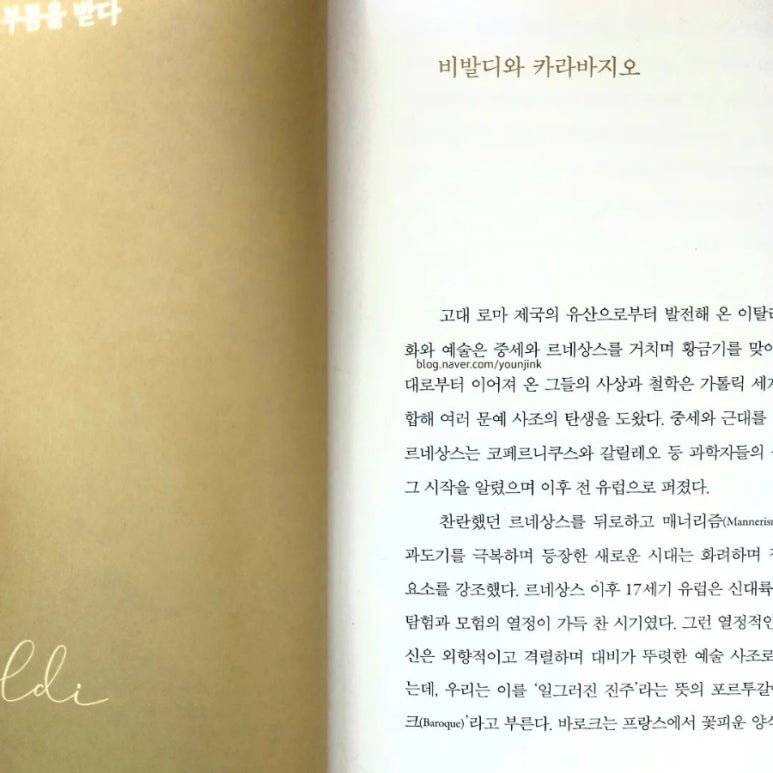 부름을 받다
ldi
비발디와 카라바지오
고대 로마 제국의 유산으로부터 발전해 온
화와 예술은 중세와 르네상스를 거치며 황금기를
blog.naver.com/younjink
대로부터 이어져 온 그들의 사상과 철학은 가톨릭
합해 여러 문예 사조의 탄생을 도왔다. 중세와 근대를
르네상스는 코페르니쿠스와 갈릴레오 등 과학자들의
그 시작을 알렸으며 이후 전 유럽으로 퍼졌다.
찬란했던 르네상스를 뒤로하고 매너리즘(Manneris
과도기를 극복하며 등장한 새로운 시대는 화려하며
요소를 강조했다. 르네상스 이후 17세기 유럽은 신대륙
탐험과 모험의 열정이 가득 찬 시기였다. 그런 열정적인
신은 외향적이고 격렬하며 대비가 뚜렷한 예술 사조로
는데, 우리는 이를 ‘일그러진 진주’라는 뜻의
크(Baroque)’라고 부른다. 바로크는 프랑스에서 꽃피운